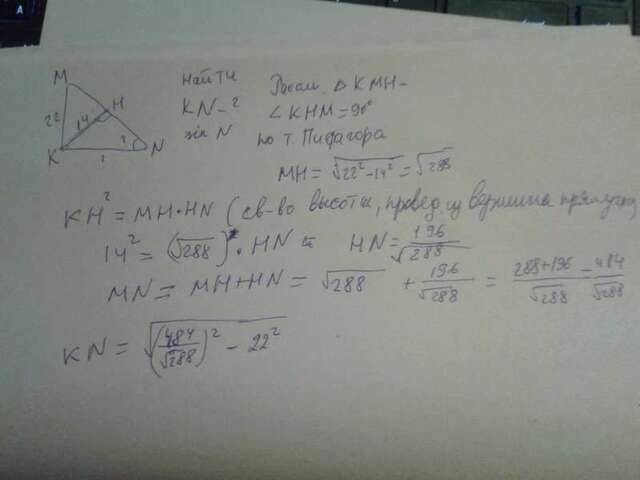 M
H
22
14
K
?
?
N
Найти
KN-?
sin N
Рассм. △ KMH-
∠ KHM=90°
по т. Пифагора
MH = √22²-14² = √288
KH² = MH·HN (св-во высоты, провед. из вершины прям. угла)
14² = (√288)·HN = HN = 196/√288
MN = MH+HN = √288 + 196/√288 = 288+196/√288 = 484/√288
KN = √(484/√288)² - 22²